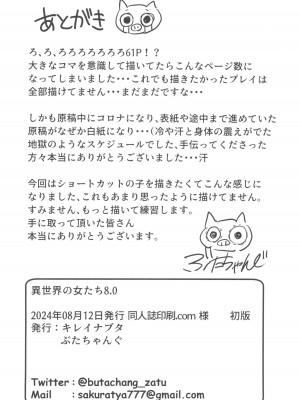 あとがき
ろ、ろ、ろろろろろろろ61P！？
大きなコマを意識して描いてたらこんなページ数に
なってしまいました・・・これでも描きたかったプレイは
全部描けてません・・・まだまだですな・・・
しかも原稿中にコロナになり、表紙や途中まで進めていた
原稿がなぜか白紙になり・・・（冷や汗と身体の震えがでた
地獄のようなスケジュールでした、手伝ってくださった
方々本当にありがとうございました・・・汗
今回はショートカットの子を描きたくてこんな感じに
なりました、これもあまり思ったように描けてません。
すみません、もっと描いて練習します。
手に取って頂いた皆さん
本当にありがとうございました。
ぶたちゃんぐ
異世界の女たち8.0
2024年08月12日発行 同人誌印刷.com 様　初版
発行：キレイナブタ
ぶたちゃんぐ
Twitter : @butachang_zatu
Mail : sakuratya777@gmail.com